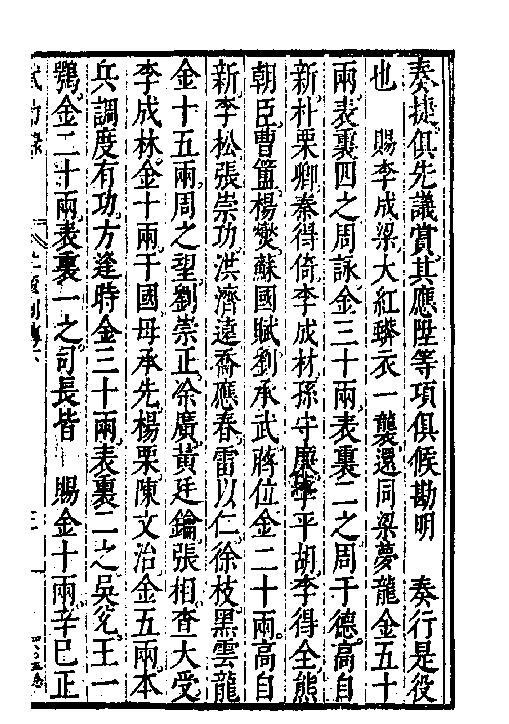 奏捷俱先議賞其應陞等項俱候勘明　奏行是役
也　賜李成梁大紅蟒衣一襲還同梁夢龍金五十
兩表裏四之周詠金三十兩表裏二之周于德高自
新朴栗卿秦得倚李成材孫守廉李平胡李得全熊
朝臣曹簠楊燮蘇國賦劉承武蔣位金二十兩高自
新李松張崇功洪濟遠喬應春雷以仁徐枝黑雲龍
金十五兩周之望劉崇正凃廣黃廷鑰張相查大受
李成林金十兩于國母承先楊栗陳文治金五兩本
兵調度有功方逢時金三十兩表裏二之吳兌王一
鶚金二十兩表裏一之司長皆　賜金十兩辛巳正
武功錄